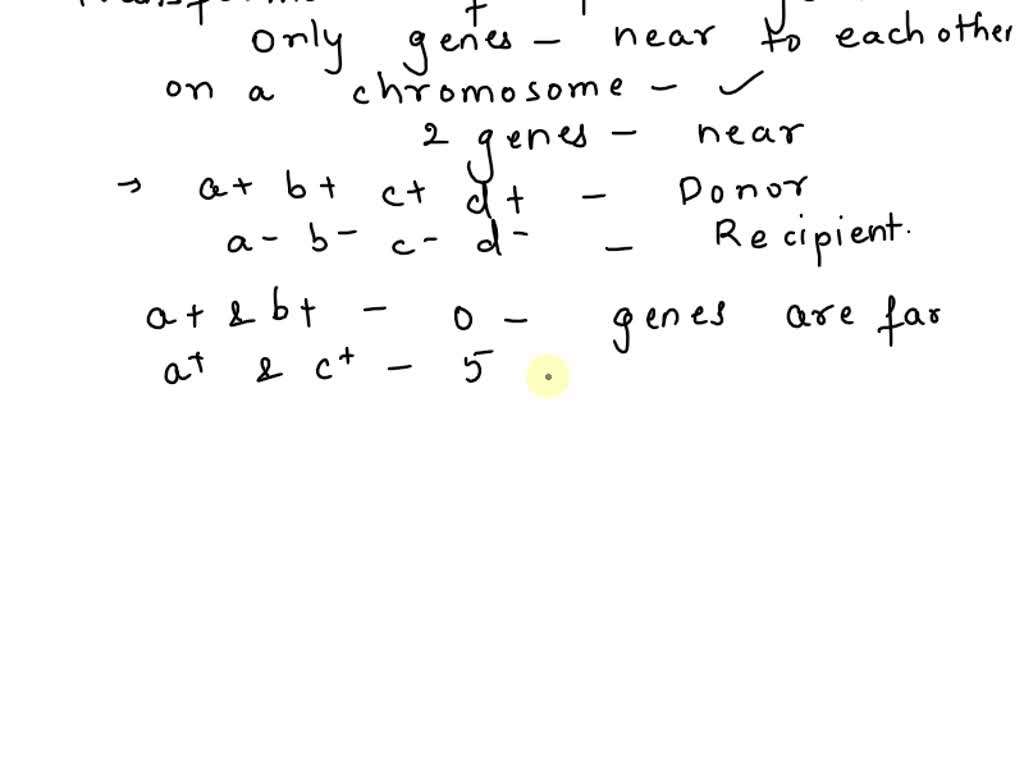 only genes - near to each other
on a chromosome - ✓
2 genes - near
→ a+ b+ c+ d+ - Donor
a- b- c- d- - Recipient.
a+ & b+ - 0 - genes are far
a+ & c+ - 5